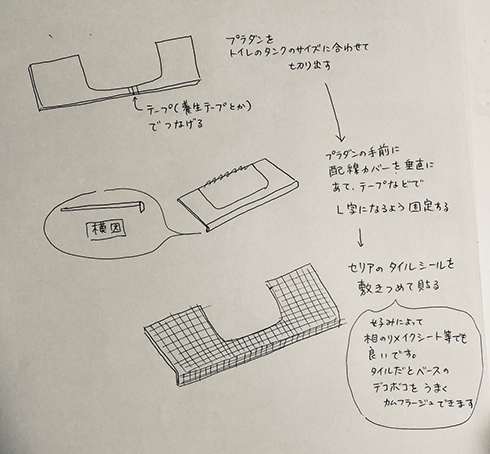 プラダンを
トイレのタンクのサイズに合わせて
切り出す
テープ(養生テープとか)
でつなげる
プラダンの手前に
配線カバーを垂直に
あて、テープなどで
L字になるよう固定する
横図
セリアのタイルシールを
敷きつめて貼る
好みによって
他のリメイクシート等でも
良いです。
タイルだとベースの
デコボコをうまく
カムフラージュできます